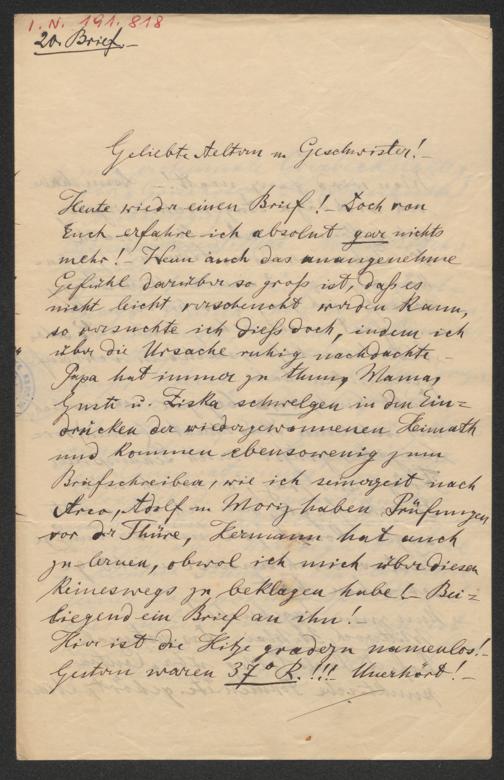 I. N. 191.818
20. Brief.
Geliebte Aeltern u. Geschwister! –
Heute wieder einen Brief! – Doch von
Euch erfahre ich absolut gar nichts
mehr! – Wenn auch das unangenehme
Gefühl darüber so groß ist, daß es
nicht leicht verscheucht werden kann,
so versuchte ich dieß doch, indem ich
über die Ursache ruhig nachdachte –
Papa hat immer zu thun, Mama,
Gusti u. Ziska schwelgen in den Ein=
drücken der wiedergewonnenen Heimath
und kommen ebensowenig zum
Briefschreiben, wie ich seinerzeit nach
Arco, Adolf u Moriz haben Prüfungen
vor der Thüre, Hermann hat auch
zu lernen, obwol ich mich über diesen
keineswegs zu beklagen habe! – Bei=
liegend ein Brief an ihn! –
Hier ist die Hitze geradezu namenlos! –
Gestern waren 37° R. !!! Unerhört! –